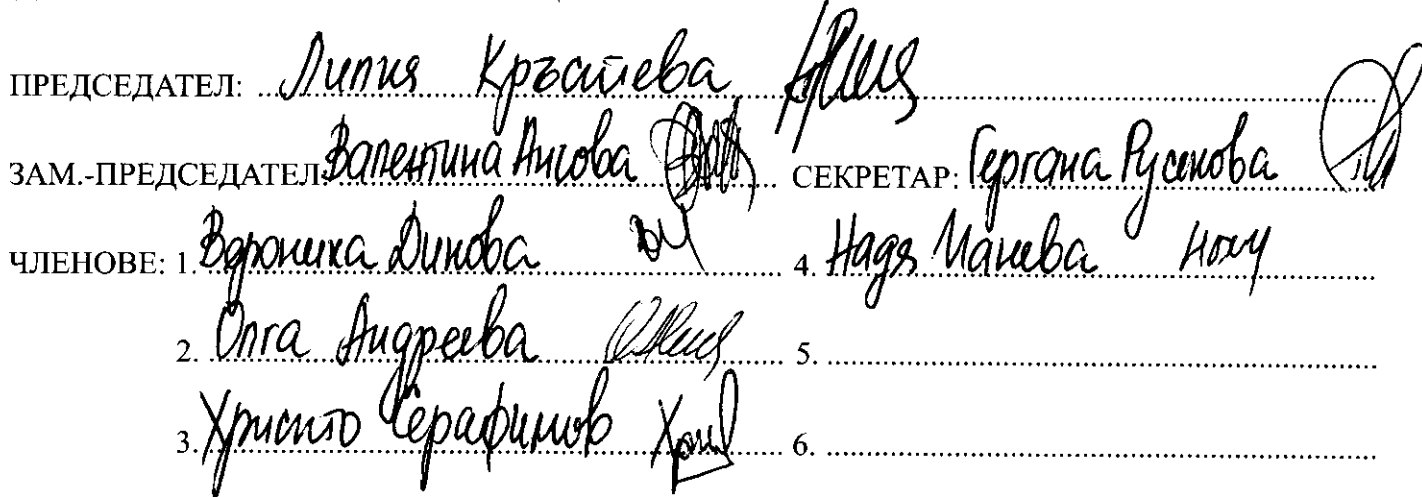 ПРЕДСЕДАТЕЛ: Лилия Кръстева
ЗАМ.-ПРЕДСЕДАТЕЛ: Валентина Ангова СЕКРЕТАР: Гергана Русенова
ЧЛЕНОВЕ: 1. Вероника Динова 4. Надя Манева
2. Олга Андреева 5.
3. Христо Серафимов 6.